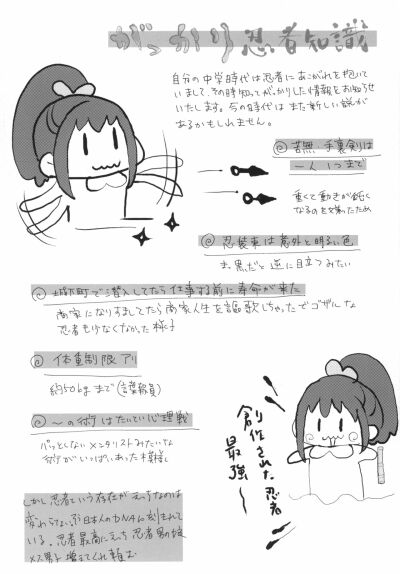 がっかり忍者知識
自分の中学時代は忍者にあこがれを抱いて
いまして、その時知ってがっかりした情報をお知らせ
いたします。今の時代はまた新しい説が
あるかもしれません。
◎苦無・手裏剣は
一人1つまで
重くて動きが鈍く
なるのを嫌ったため
◎忍装束は意外と明るい色
ま、黒だと逆に目立つみたい
◎城下町で潜入してたら仕事する前に寿命が来た
商家になりすましてたら商家人生を謳歌しちゃったでゴザルな
忍者も少なくなかった様子
◎体重制限アリ
約50kgまで
◎〜の術はたいてい心理戦
パッとしないメンタリストみたいな
術がいっぱいあった模様
創作された忍者
最強〜
しかし忍者という存在がえっちなのは
変わらない 日本人のDNAに刻まれて
いる。忍者最高にえっち 忍者男の娘
メス男子増えてくれ頼む